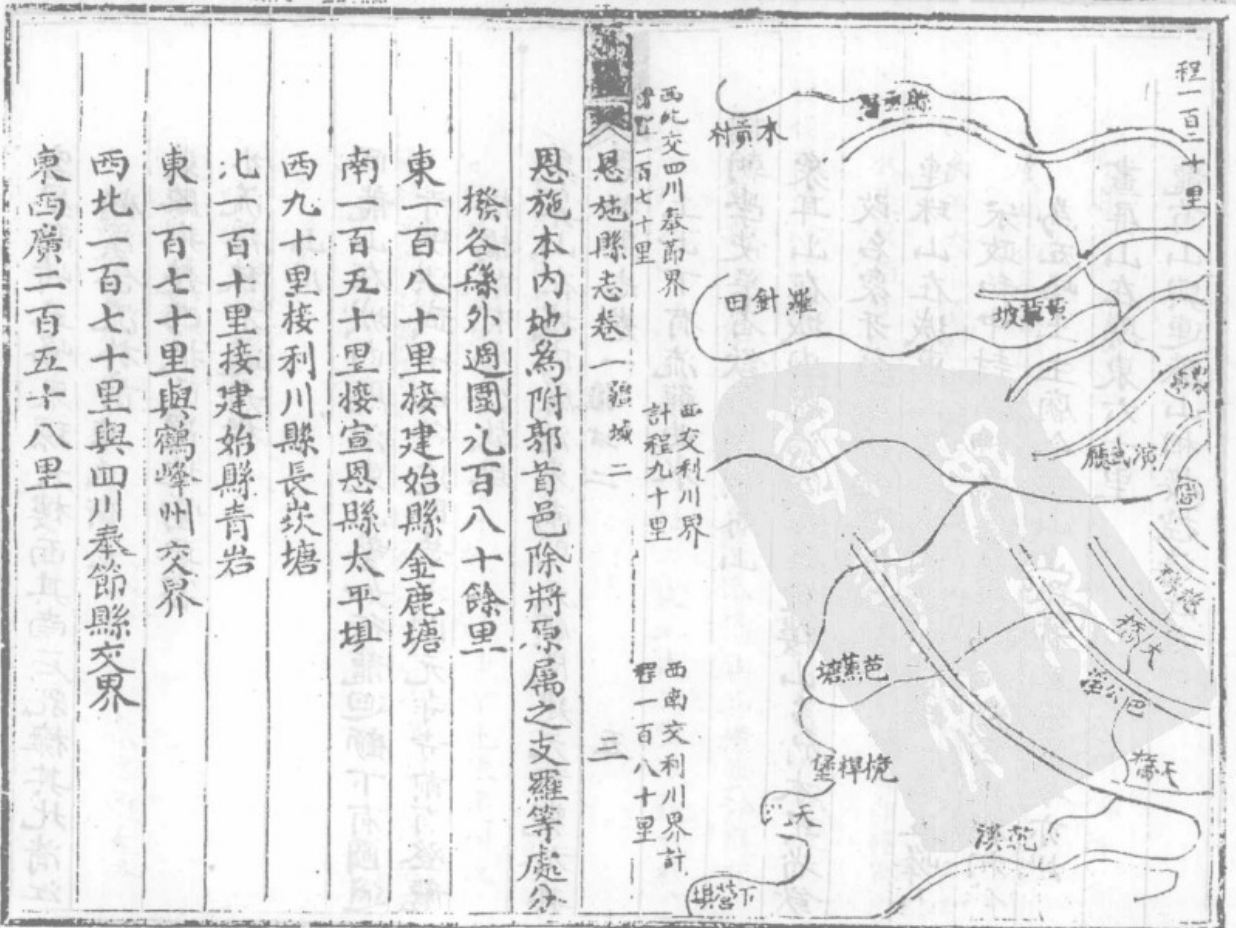 程一百二十里
木貢村
羅針田
演武廳
大橋
巴公塋
芭蕉塘
天橋
下營垻
西北交四川奉節界
一百七十里
西交利川界
計程九十里
西南交利川界計
程一百八十里
恩施縣志卷一 疆域二 三
恩施本内地為附郭首邑除將原属之支羅等處分
撥各縣外週圍九百八十餘里
東一百八十里接建始縣金鹿塘
南一百五十里接宣恩縣太平垻
西九十里接利川縣長炭塘
北一百十里接建始縣青岩
東一百七十里與鶴峰州交界
西北一百七十里與四川奉節縣交界
東西廣二百五十八里